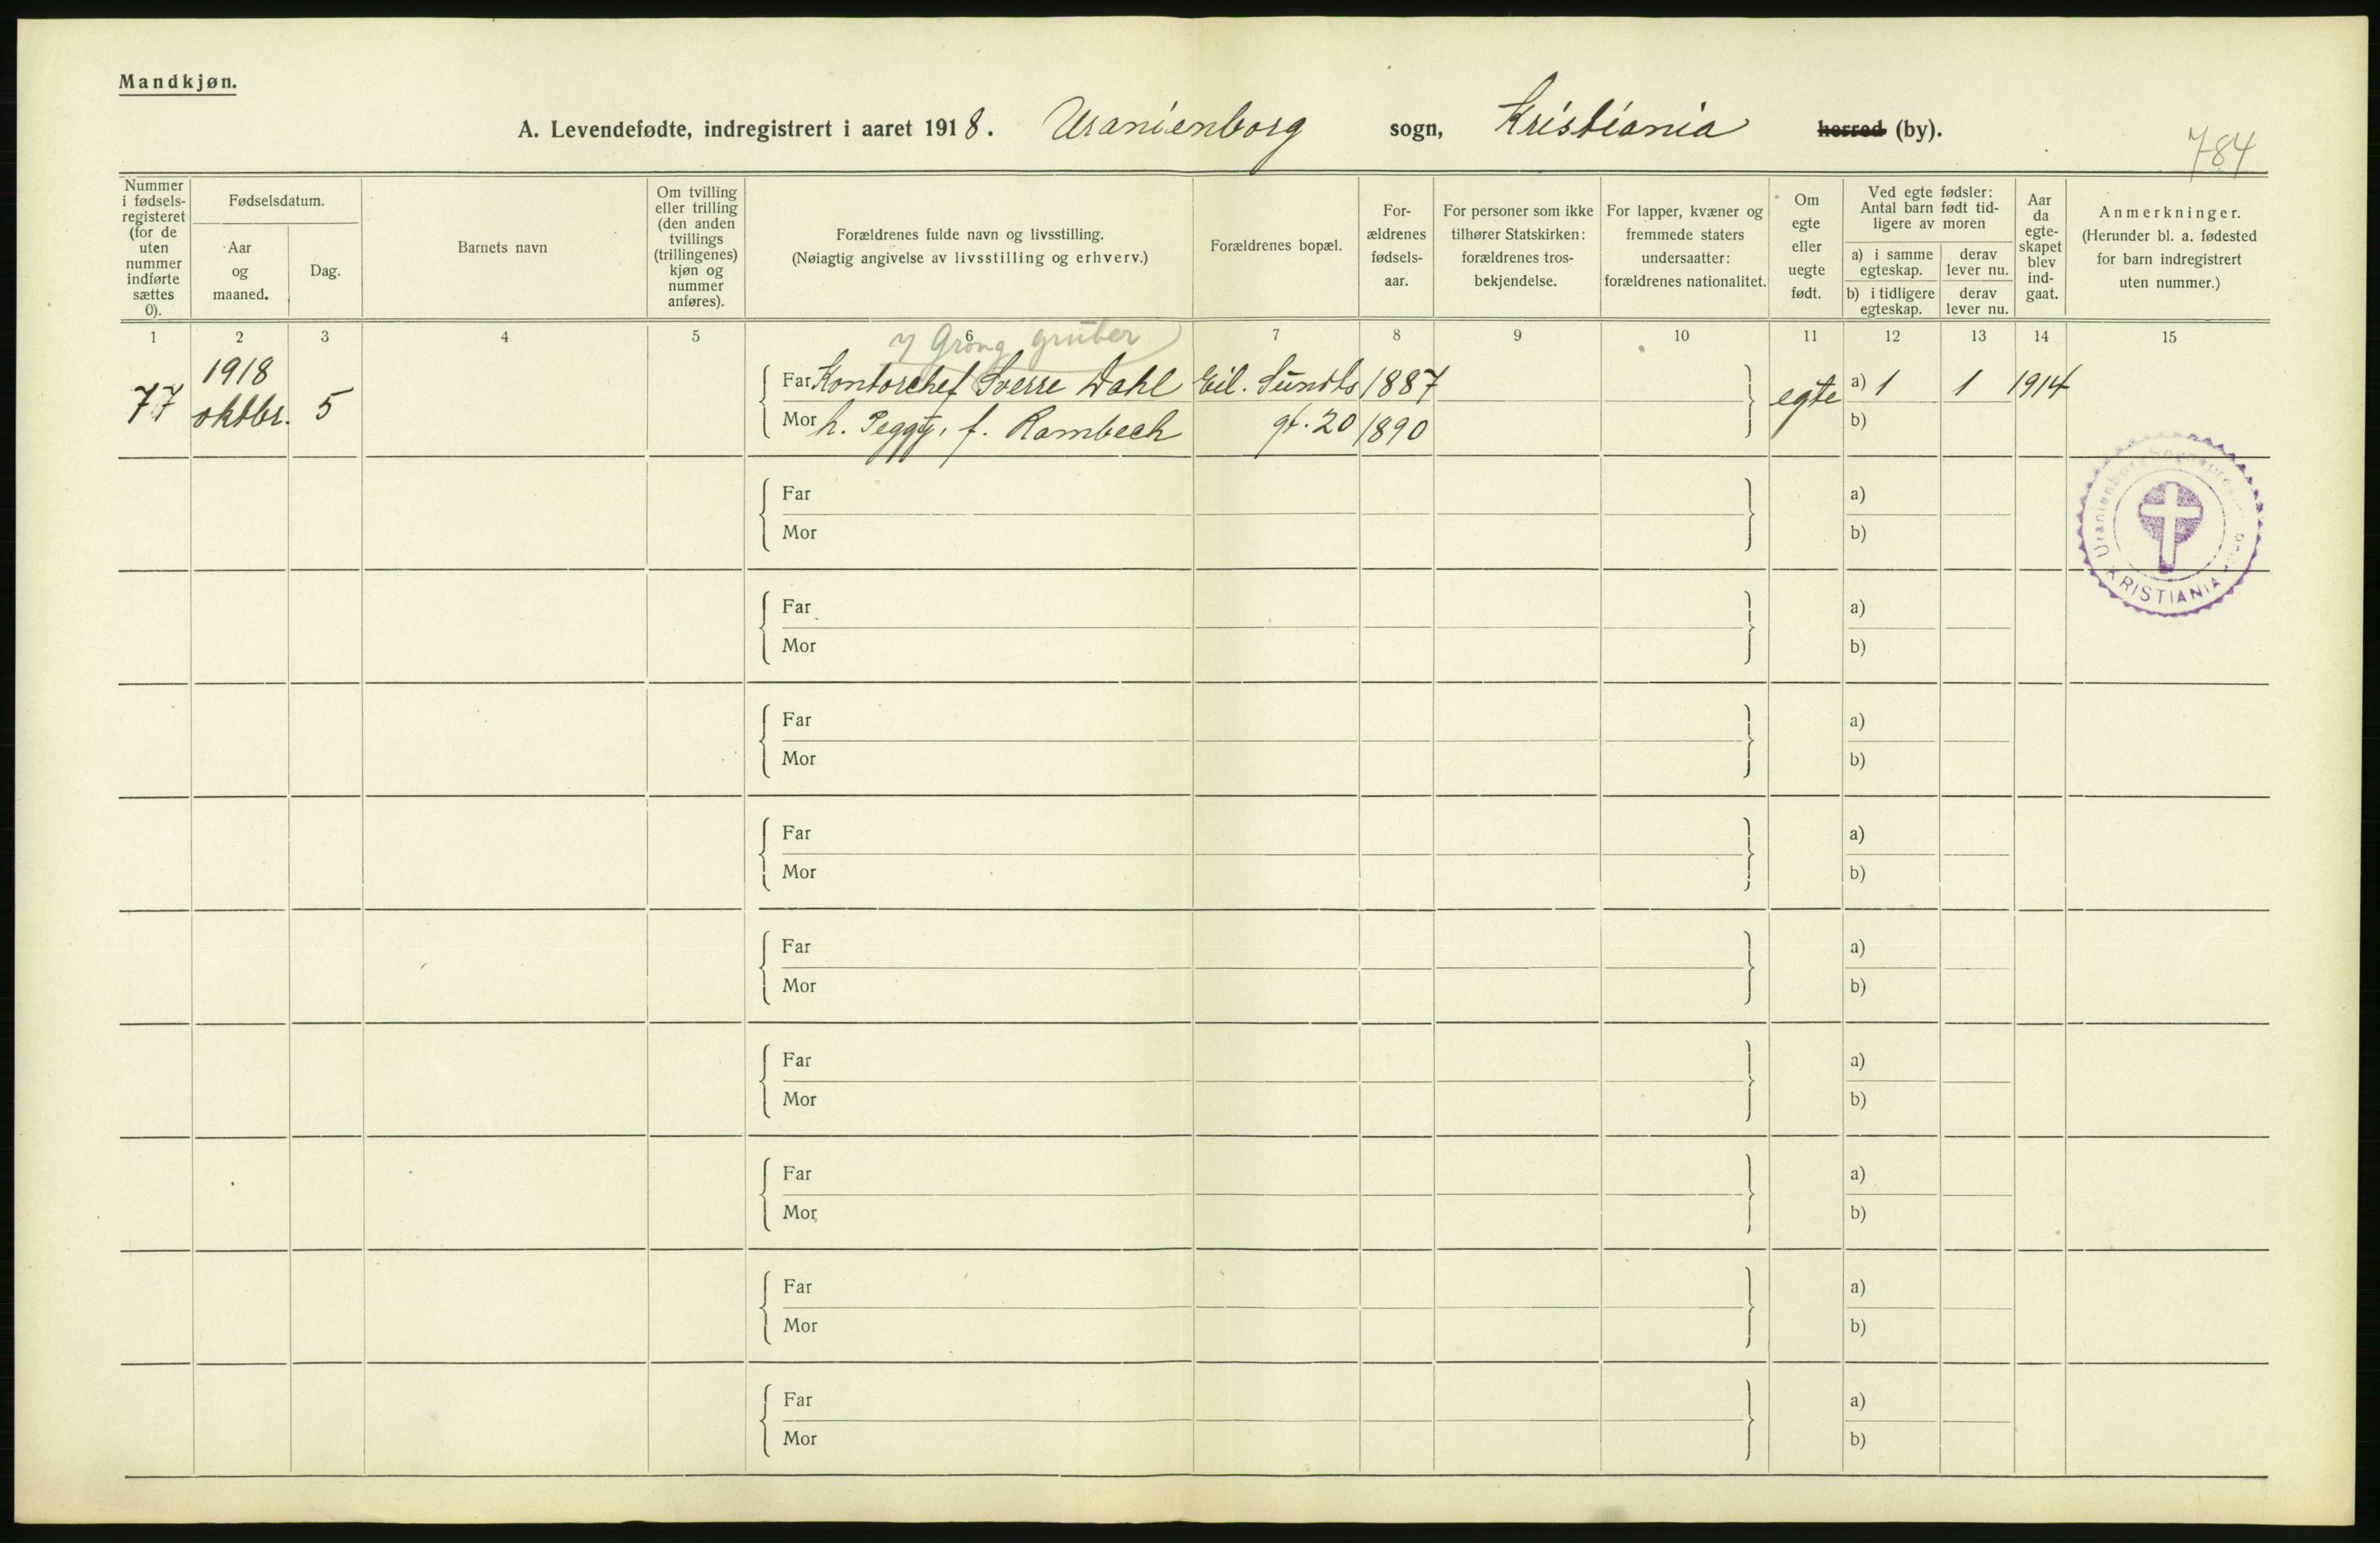 Mandkjøn.
A. Levendefødte, indregistrert i aaret 1918. Uranienborg sogn, Kristiania herred (by).
784
Nummer
i fødsels-
registeret
(for de
uten
nummer
indførte
sættes
0).
Fødselsdatum.
Aar
og
maaned.
Dag.
Barnets navn
Om tvilling
eller trilling
(den anden
tvillings
(trillingenes)
kjøn og
nummer
anføres).
Forældrenes fulde navn og livsstilling.
(Nøiagtig angivelse av livsstilling og erhverv.)
Forældrenes bopæl.
For-
ældrenes
fødsels-
aar.
For personer som ikke
tilhører Statskirken:
forældrenes tros-
bekjendelse.
For lapper, kvæner og
fremmede staters
undersaatter:
forældrenes nationalitet.
Om
egte
eller
uegte
født.
Ved egte fødsler:
Antal barn født tid-
ligere av moren
a) i samme
egteskap.
derav
lever nu.
b) i tidligere
egteskap.
derav
lever nu.
Aar
da
egte-
skapet
blev
ind-
gaat.
Anmerkninger.
(Herunder bl. a. fødested
for barn indregistrert
uten nummer.)
1 2 3 4 5 6 7 8 9 10 11 12 13 14 15
Grong gruber
77 1918 oktbr. 5
Far Kontorchef Sverre Dahl Eil. Sundts 1887 egte a) 1 1 1914
Mor h. Peggy, f. Rambech gt. 20 1890 b)
Uranienborg Sogneprest
KRISTIANIA
Far a)
Mor b)
Far a)
Mor b)
Far a)
Mor b)
Far a)
Mor b)
Far a)
Mor b)
Far a)
Mor b)
Far a)
Mor b)
Far a)
Mor b)
Far a)
Mor b)